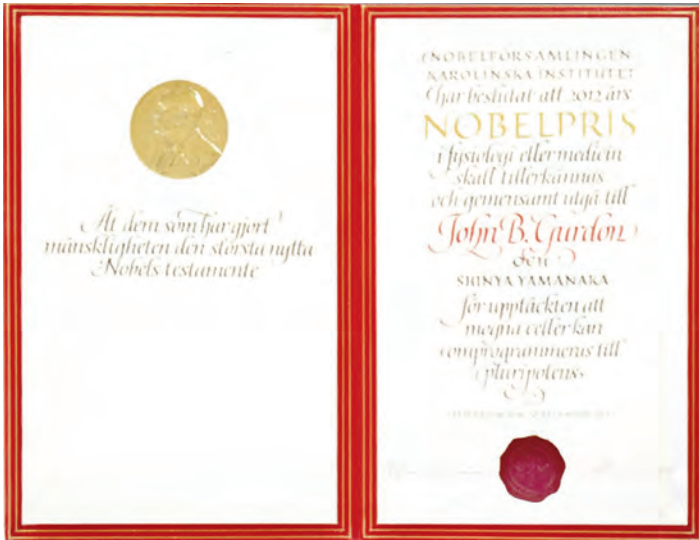 Åt dem som har gjort
mänskligheten den största nytta
Nobels testamente
NOBELFÖRSAMLINGEN
KAROLINSKA INSTITUTET
har beslutat att 2012 års
NOBELPRIS
i fysiologi eller medicin
skall tillerkännas
och gemensamt utgå till
John B. Gurdon
SHINYA YAMANAKA
för upptäckten att
mogna celler kan
omprogrammeras till
pluripotens